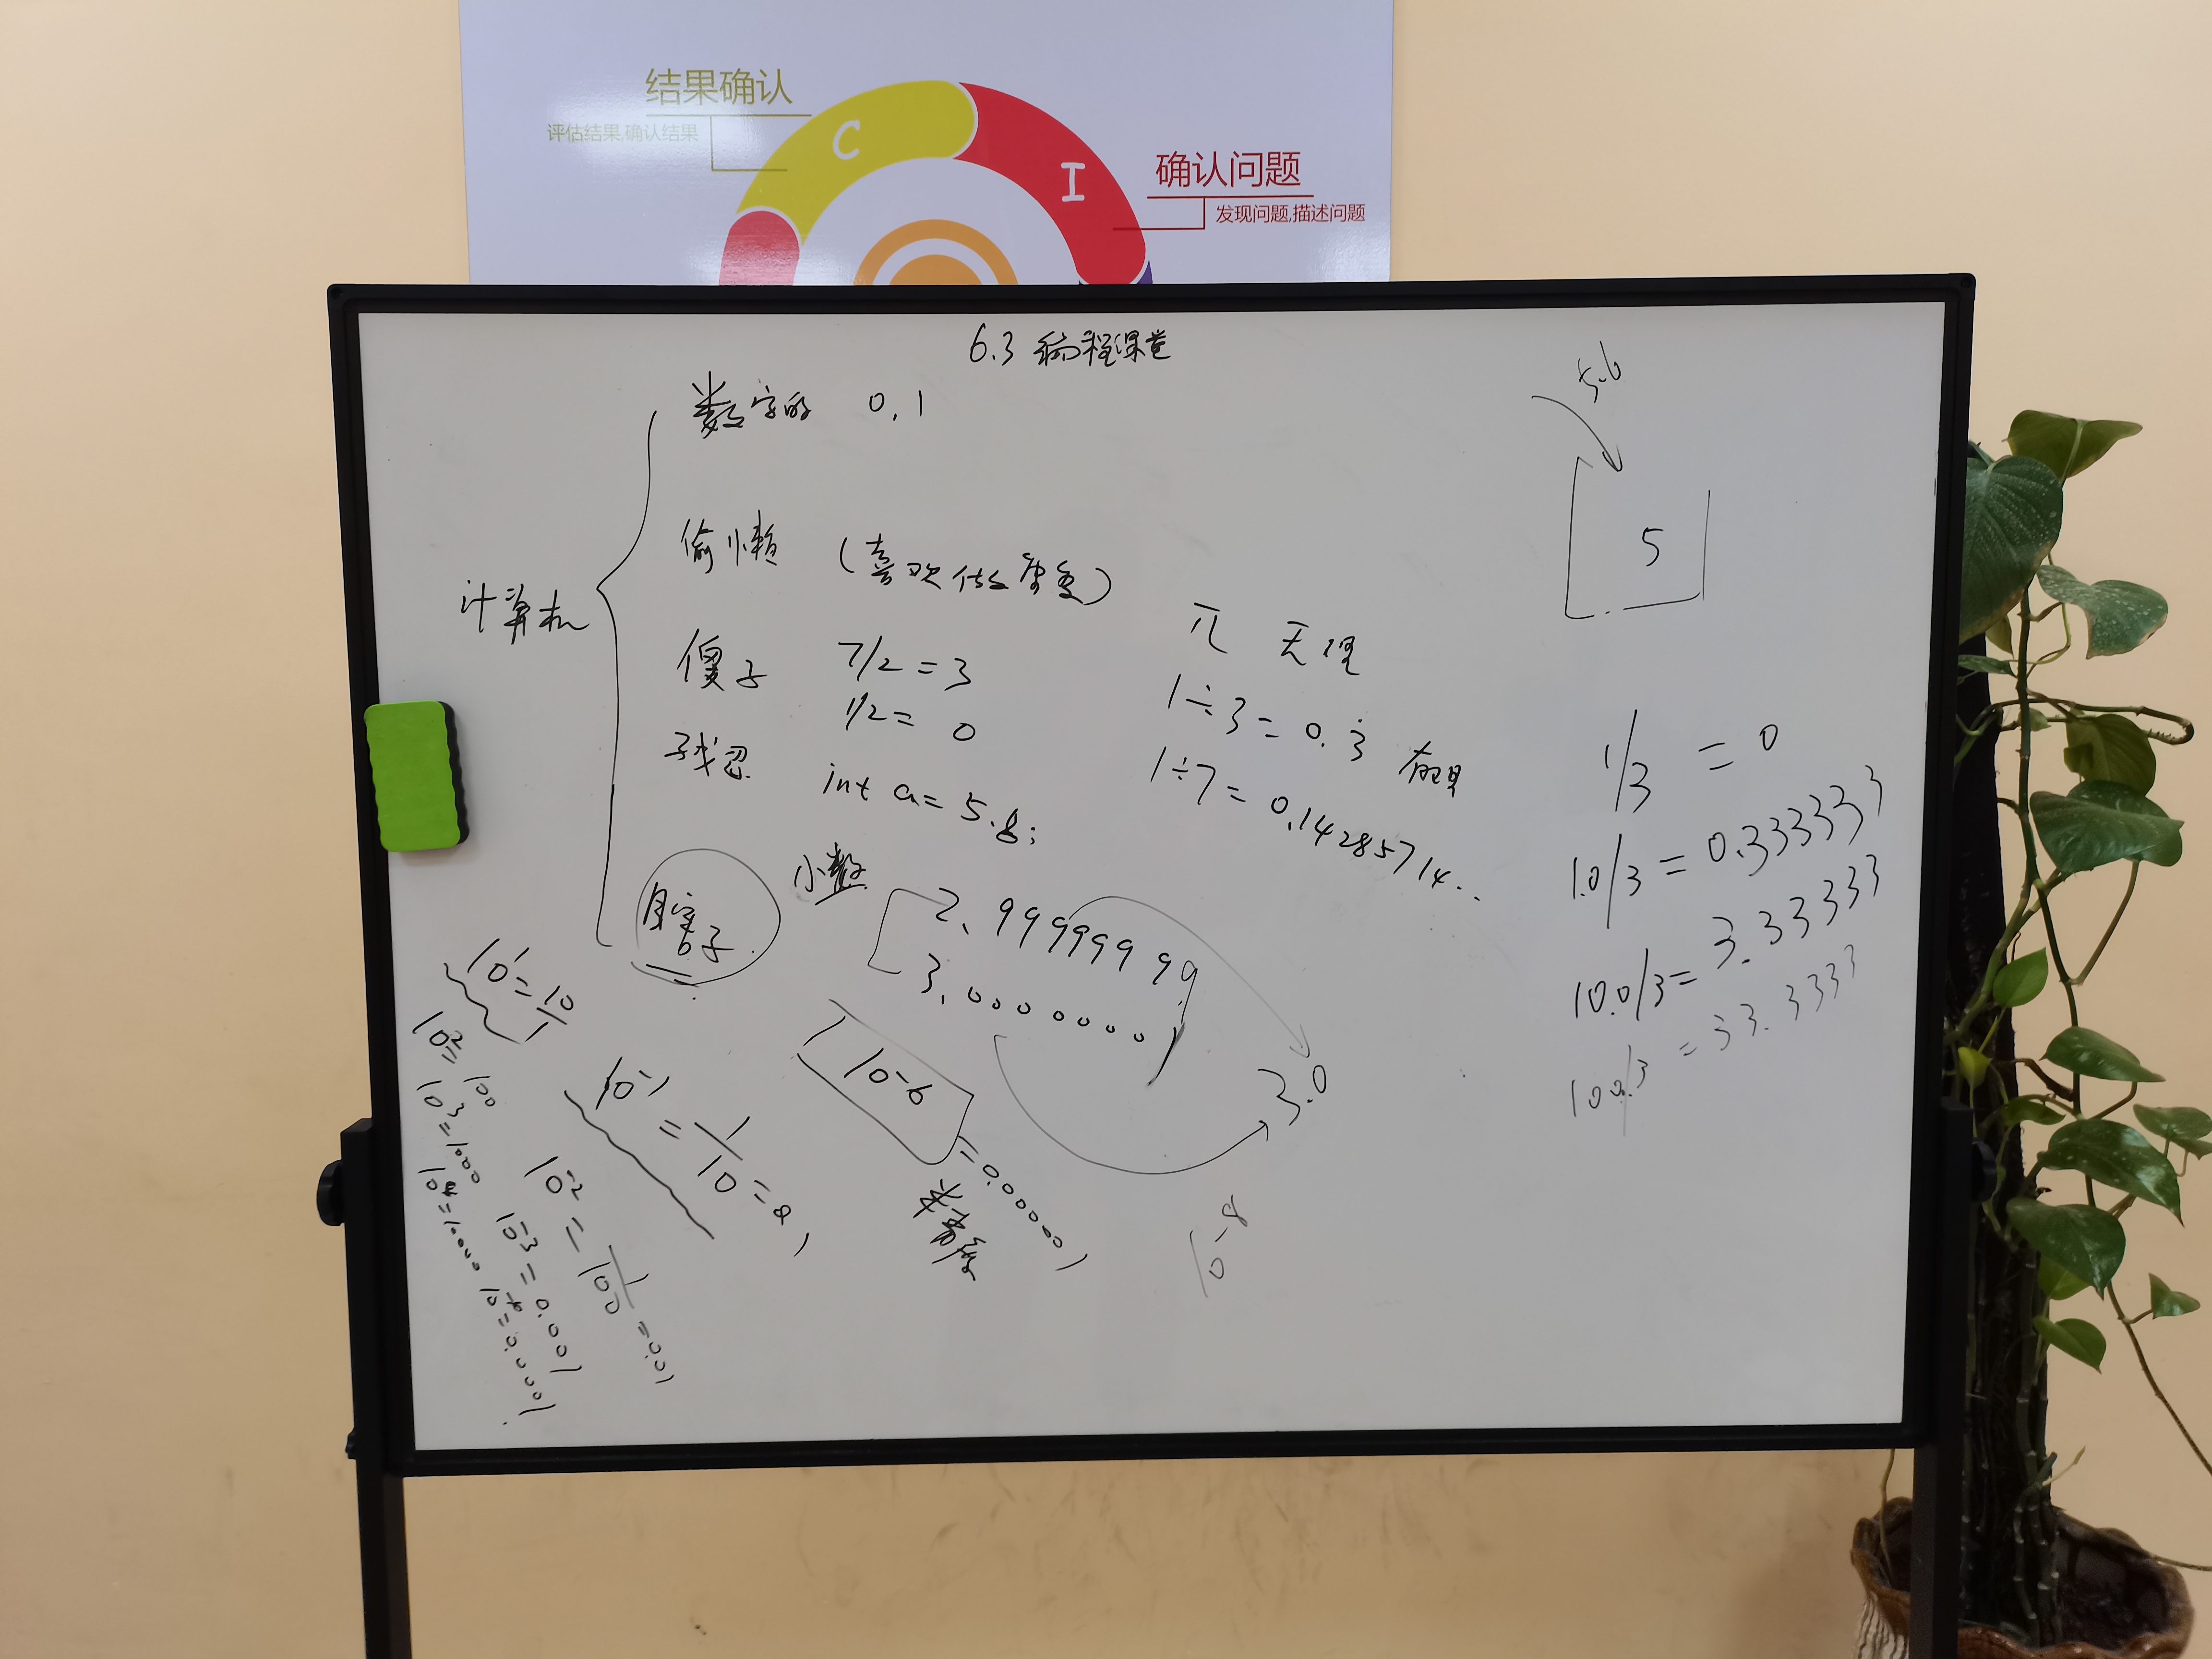 结果确认
评估结果,确认结果
C
I
确认问题
发现问题,描述问题
6.3 编程课堂
数字的 0,1
偷懒 (喜欢做重复)
计算机
傻子 7/2=3
1/2= 0
残忍 int a=5.8;
瞎子 小数
2.99999999
3.00000001
3.0
π 无理
1÷3=0.3̇ 有理
1÷7=0.14285714...
5.6
5
1/3 = 0
1.0/3=0.333333
10.0/3=3.33333
100./3=33.3333
10¹=10/1
10²=100
10³=1000
10⁴=10000
10⁻¹=1/10=0.1
10⁻²=1/100=0.01
10⁻³=0.001
10⁻⁶=0.000001
10⁻⁸